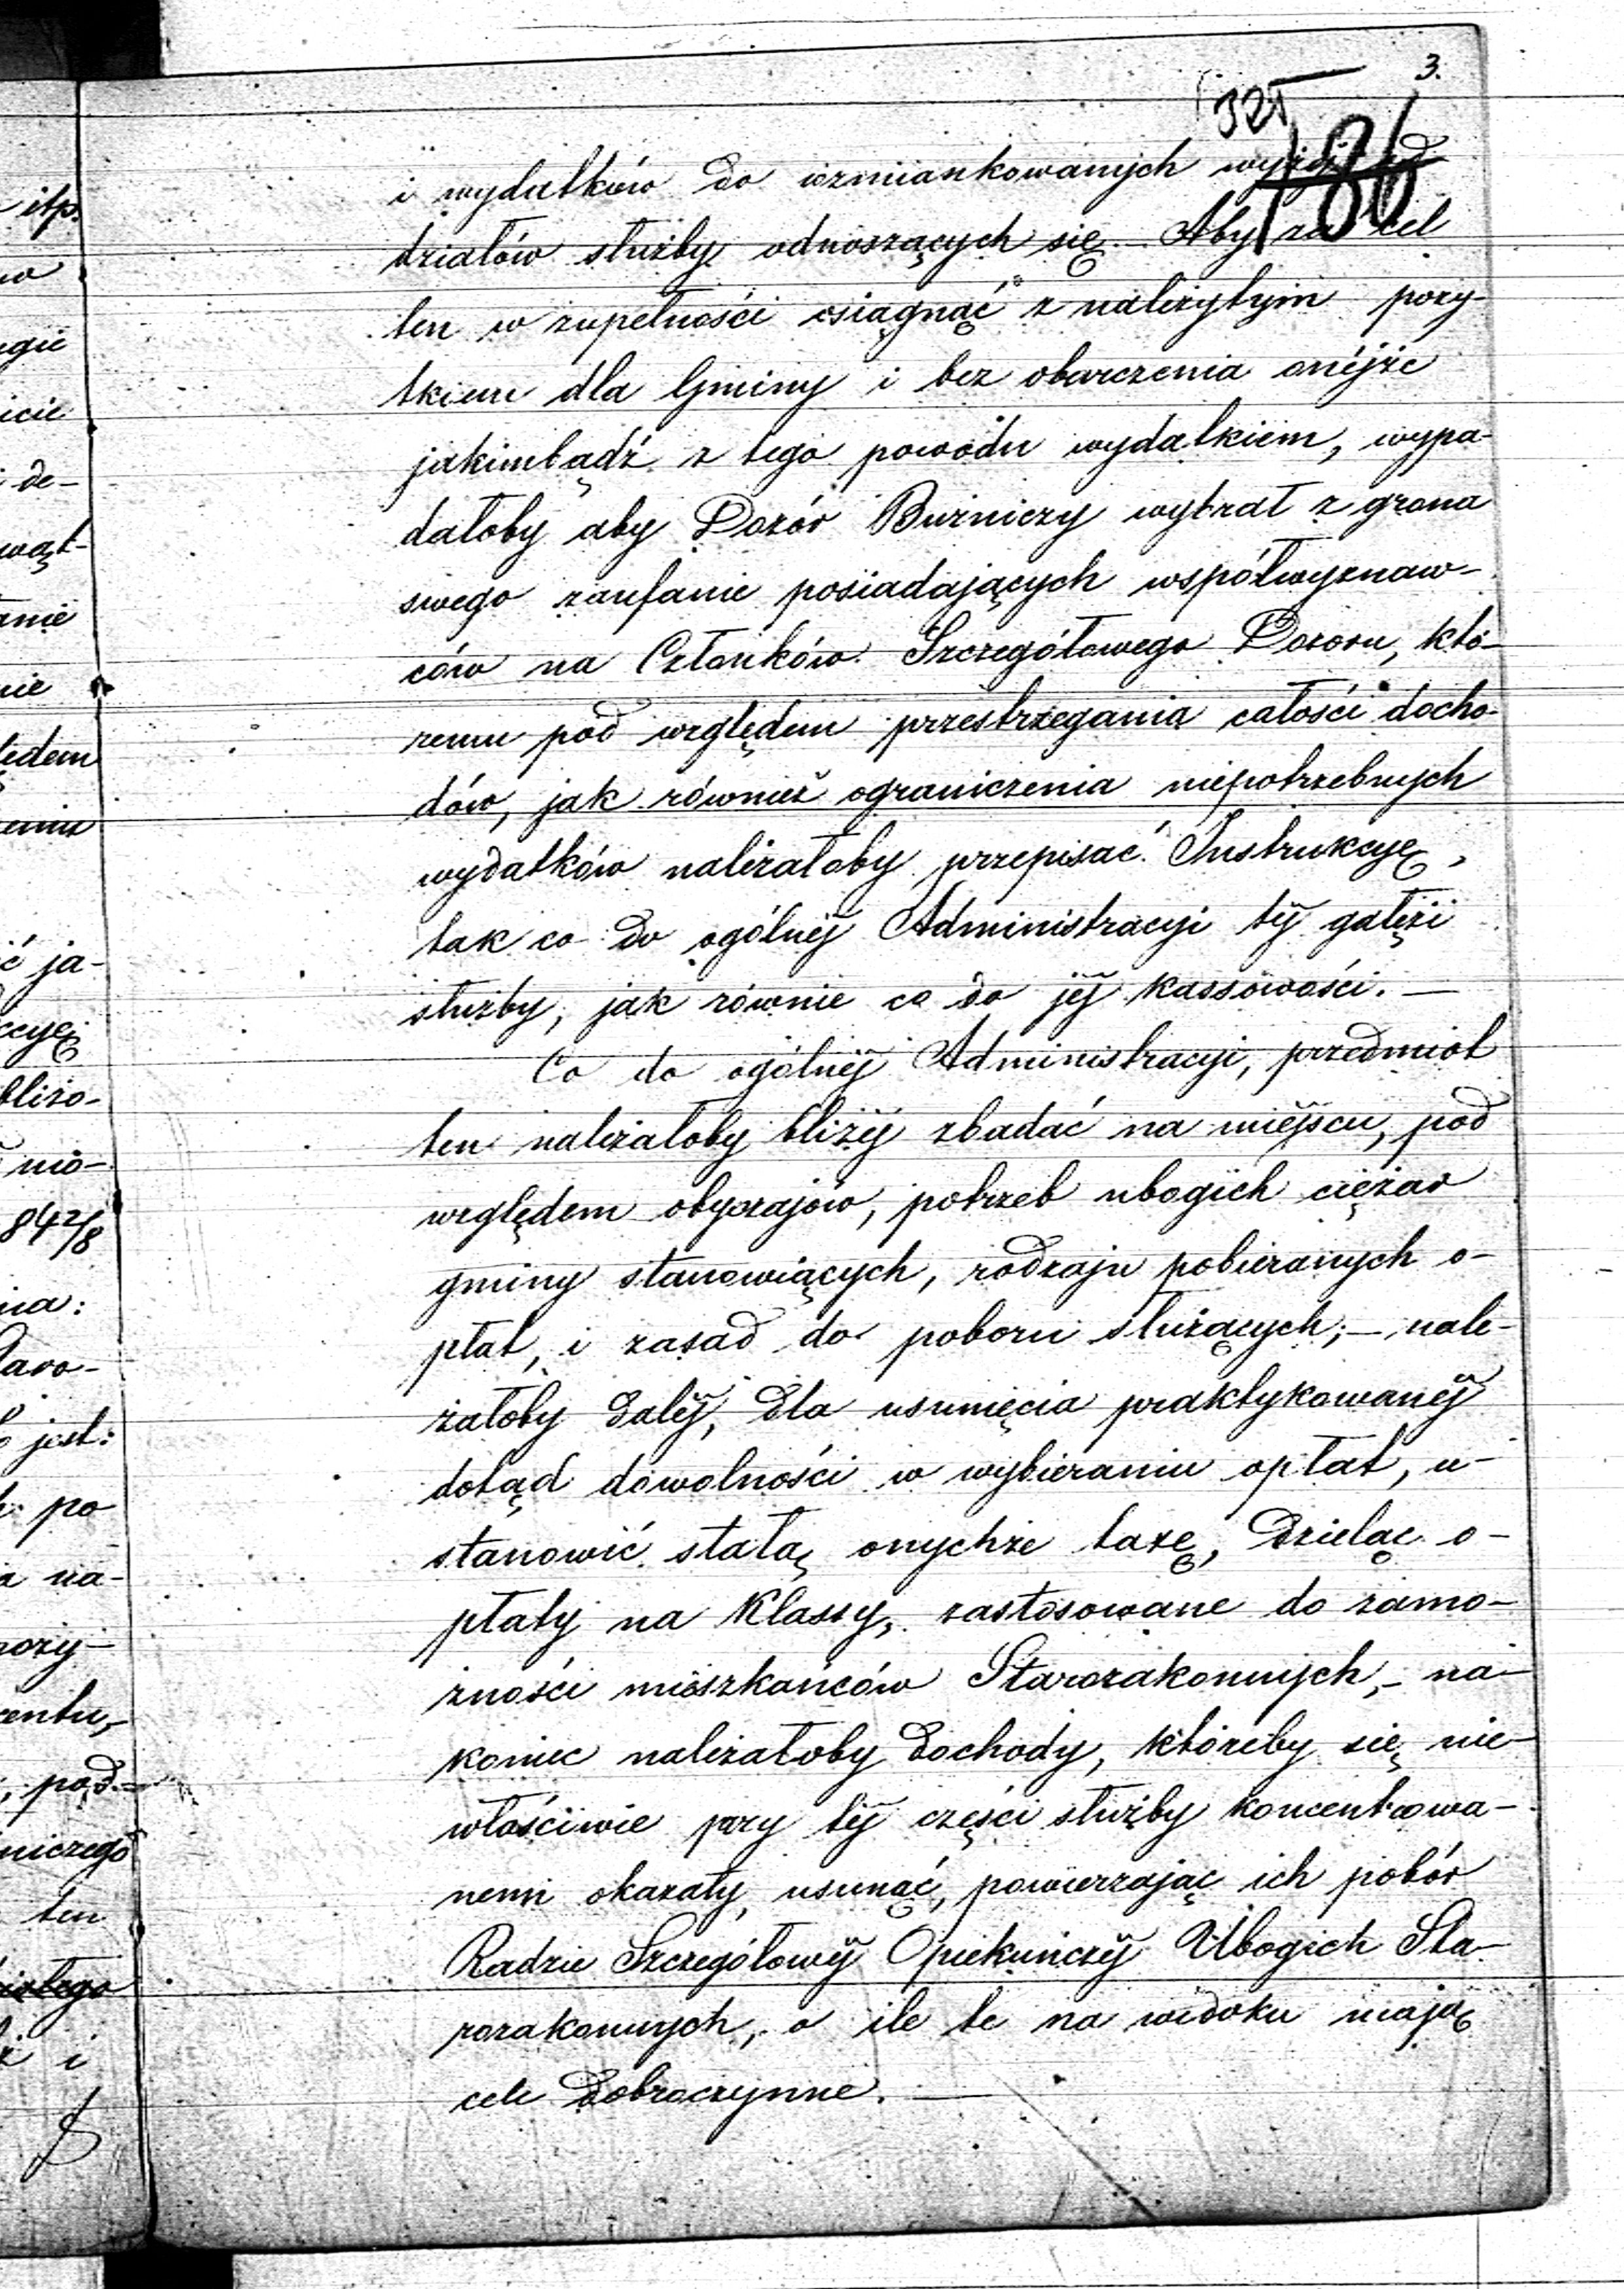 3.
321
186
i wydatków do wzmiankowanych wyżej od
działów służby odnoszących się. – Aby zaś cel
ten w zupełności osiągnąć z należytym pozy-
tkiem dla Gminy i bez obarczenia onéjże
jakimbądź z tego powodu wydatkiem, wypa-
dałoby aby Dozór Bużniczy wybrał z grona
swego zaufanie posiadających współwyznaw-
ców na Członków Szczegółowego Dozoru, któ-
remu pod względem przestrzegania całości docho-
dów, jak również ograniczenia niepotrzebnych
wydatków należałoby przepisać Instrukcyę,
tak co do ogólnéj Administracyi téj gałęzi
służby, jak równie co do jéj kassowości. —
Co do ogólnéj Administracyi, przedmiot
ten należałoby bliżéj zbadać na miéjscu, pod
względem obyczajów, potrzeb ubogich ciężar
gminy stanowiących, rodzaju pobieranych o-
płat, i zasad do poboru służących; – nale-
żałoby daléj, dla usunięcia praktykowanéj
dotąd dowolności w wybieraniu opłat, u-
stanowić stałą onychże taxę, dzieląc o-
płaty na Klassy, zastosowane do zamo-
żności mieszkańców Starozakonnych, – na-
koniec należałoby dochody, któreby się nie-
właściwie przy téj części służby koncentrowa-
nemi okazały, usunąć, powierzając ich pobór
Radzie Szczegółowéj Opiekuńczéj Ubogich Sta-
rozakonnych, o ile te na widoku mają
cele dobroczynne. —
itp.
de-
ja-
842/8
jest:
po
na-
pod-
ten
i